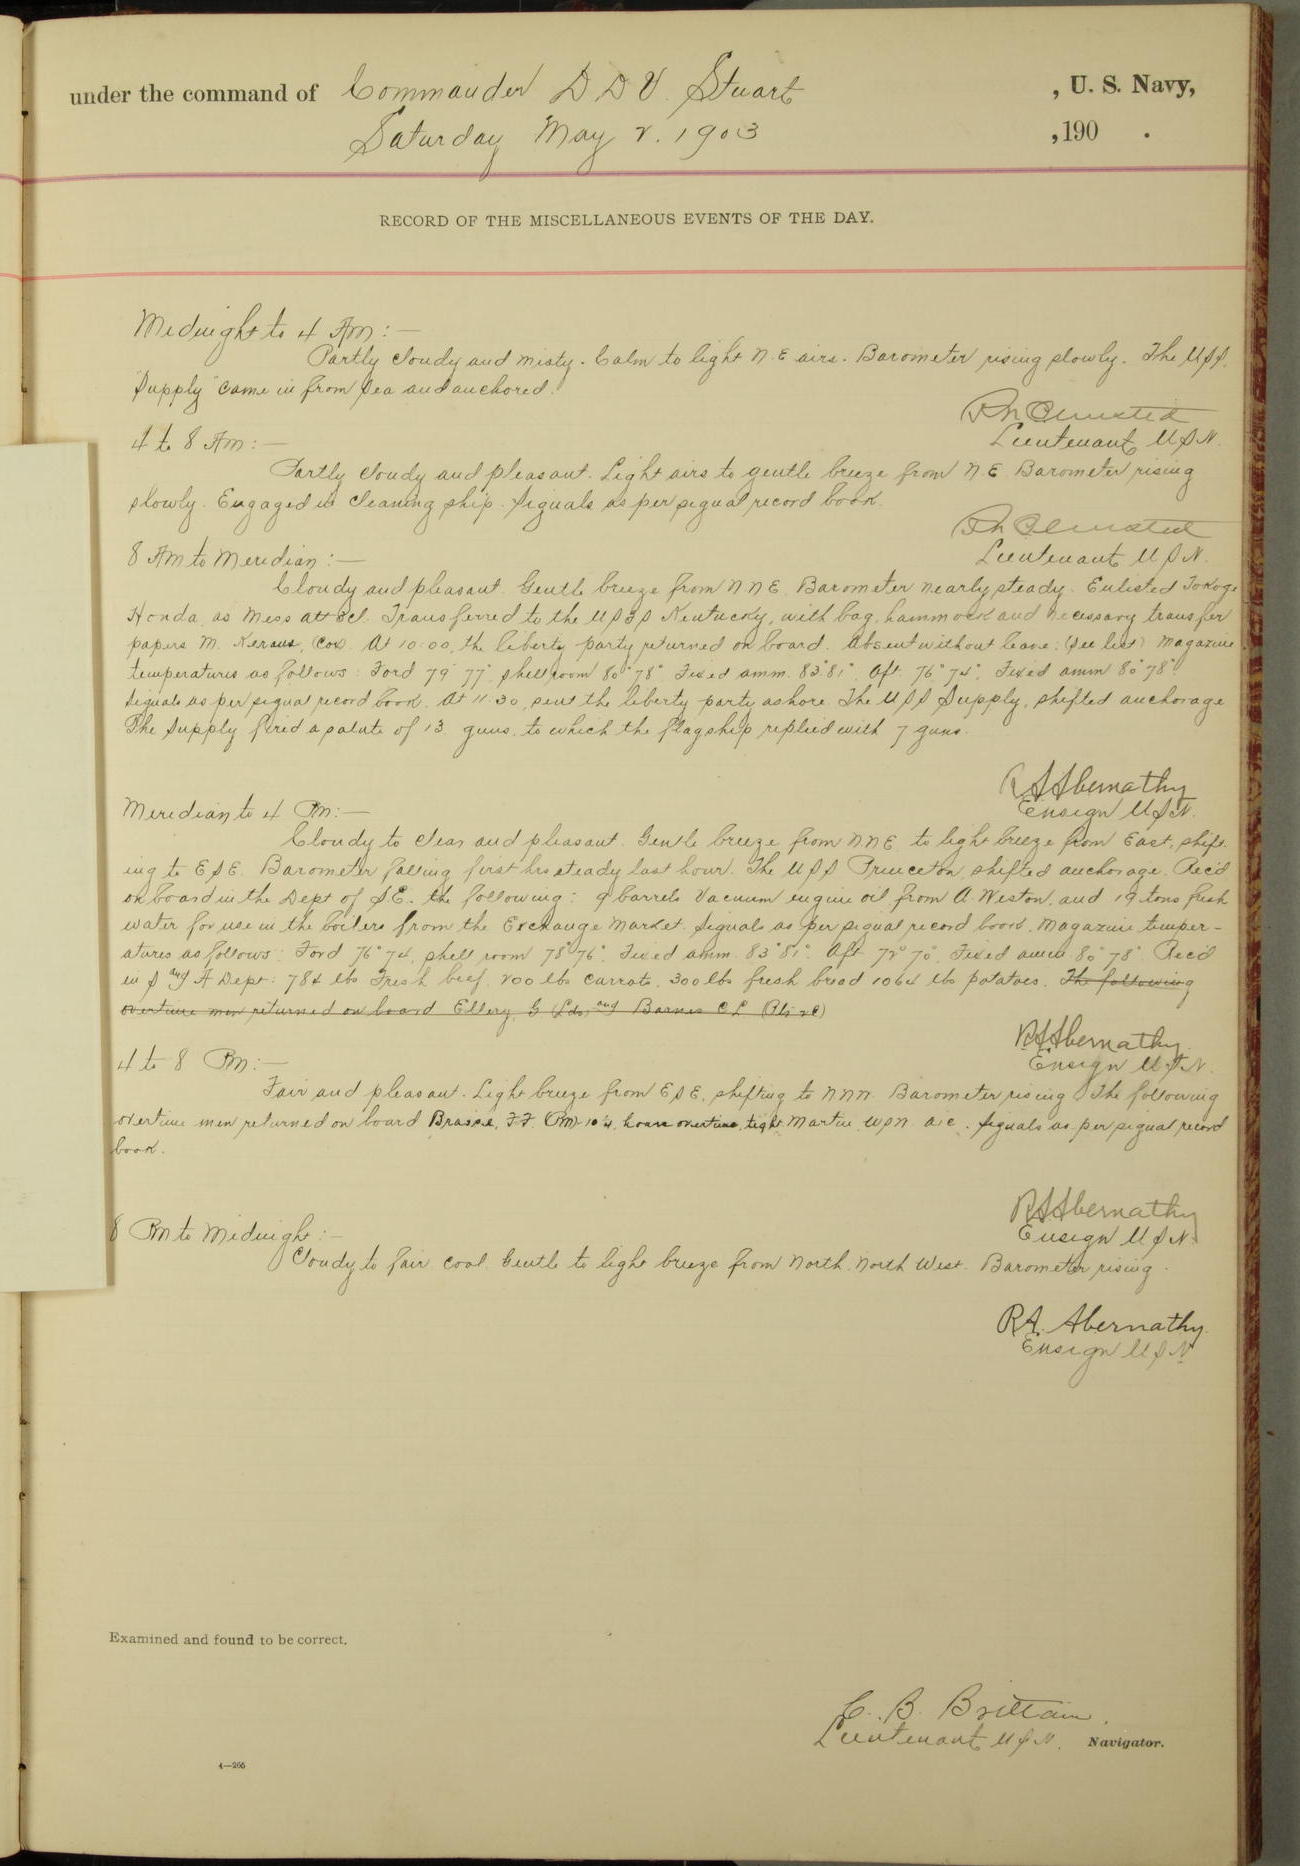 under the command of Commander D D V. Stuart , U. S. Navy,
Saturday May 2. 1903 ,190 .
RECORD OF THE MISCELLANEOUS EVENTS OF THE DAY.
Midnight to 4 AM:—
Partly cloudy and misty. Calm to light N.E airs. Barometer rising slowly. The U.S.S.
"Supply" came in from Sea and anchored.
Olmsted
4 to 8 AM:— Lieutenant U.S.N.
Partly cloudy and pleasant. Light airs to gentle breeze from N E. Barometer rising
slowly. Engaged in cleaning ship. Signals as per signal record book.
Olmsted
8 AM to Meridian:— Lieutenant U.S.N.
Cloudy and pleasant. Gentle breeze from N N E. Barometer nearly steady. Enlisted
Honda, as Mess att 3cl. Transferred to the U.S.F.S Kentucky, with bag, hammock and necessary transfer
papers M. (Cox). At 10:00, the liberty party returned on board. Absent without leave: (See list) Magazine
temperatures as follows: Ford 79° 77°, shell room 80° 78°. Fixed amm. 83° 81°. Aft. 76° 74°, Fixed amm 80° 78°.
Signals as per signal record book. At 11:30, sent the liberty party ashore. The U.S.S Supply, shifted anchorage
The Supply fired a salute of 13 guns, to which the flagship replied with 7 guns.
R A Abernathy
Meridian to 4 PM:— Ensign U.S.N.
Cloudy to clear and pleasant. Gentle breeze from N N E. to light breeze from East, shift-
ing to E S E. Barometer falling first hrs steady last hour. The U.S.S Princeton, shifted anchorage. Rec'd
on board in the Dept of S.E. the following: 9 barrels Vacuum engine oil from A. Weston, and 19 tons fresh
water for use in the boilers from the Exchange Market. Signals as per signal record book. Magazine temper-
atures as follows: Ford 76° 74, shell room 78° 76°. Fixed amm. 83° 81°. Aft 72° 70°, Fixed amm 80° 78°. Rec'd
in S and A Dept: 784 lbs Fresh beef, 200 lbs carrots, 300 lbs fresh bread 1064 lbs potatoes. The following
overtime men returned on board Ellery, G (Lds) and Barnes C L
R A Abernathy.
4 to 8 PM:— Ensign U.S.N.
Fair and pleasant. Light breeze from E S E, shifting to N N W. Barometer rising. The following
overtime men returned on board F.F. 10¼ hours overtime, Martin, W.P.N. Signals as per signal record
book.
R A Abernathy
8 PM to Midnight:— Ensign U.S.N.
Cloudy to fair cool. Gentle to light breeze from North North West. Barometer rising.
R A. Abernathy.
Ensign U S N
Examined and found to be correct.
C. B. Brittain.
Lieutenant U.S.N. Navigator.
4—265